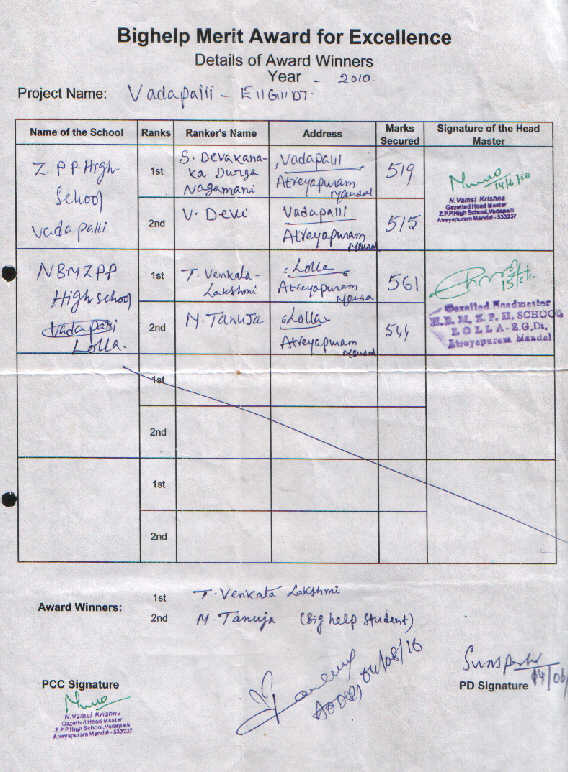 Bighelp Merit Award for Excellence
Details of Award Winners
Year - 2010.
Project Name: Vadapalli - EllGllDT.
Name of the School Ranks Ranker's Name Address Marks Secured Signature of the Head Master
Z P P High School Vadapalli
1st S. Devakanaka Durga Nagamani Vadapalli Atreyapuram Mandal 519
14/6/10
N.Vamsi Krishna
Gazetted Head Master
Z.P.P.High School, Vadapalli
Atreyapuram Mandal - 533237
2nd V. Devi Vadapalli Atreyapuram Mandal 515
NBMZPP High school Vadapalli Lolla.
1st T. Venkata-Lakshmi Lolla Atreyapuram 561
Gazetted Headmaster
LOLLA - E.G.Dt.
Atreyapuram Mandal
2nd M. Tanuja Lolla Atreyapuram Mandal 544
1st
2nd
1st
2nd
Award Winners: 1st T. Venkata Lakshmi
2nd M. Tanuja (Big help Student)
PCC Signature
N.Vamsi Krishna
Gazetted Head Master
Z.P.P.High School, Vadapalli
Atreyapuram Mandal - 533237
PD Signature